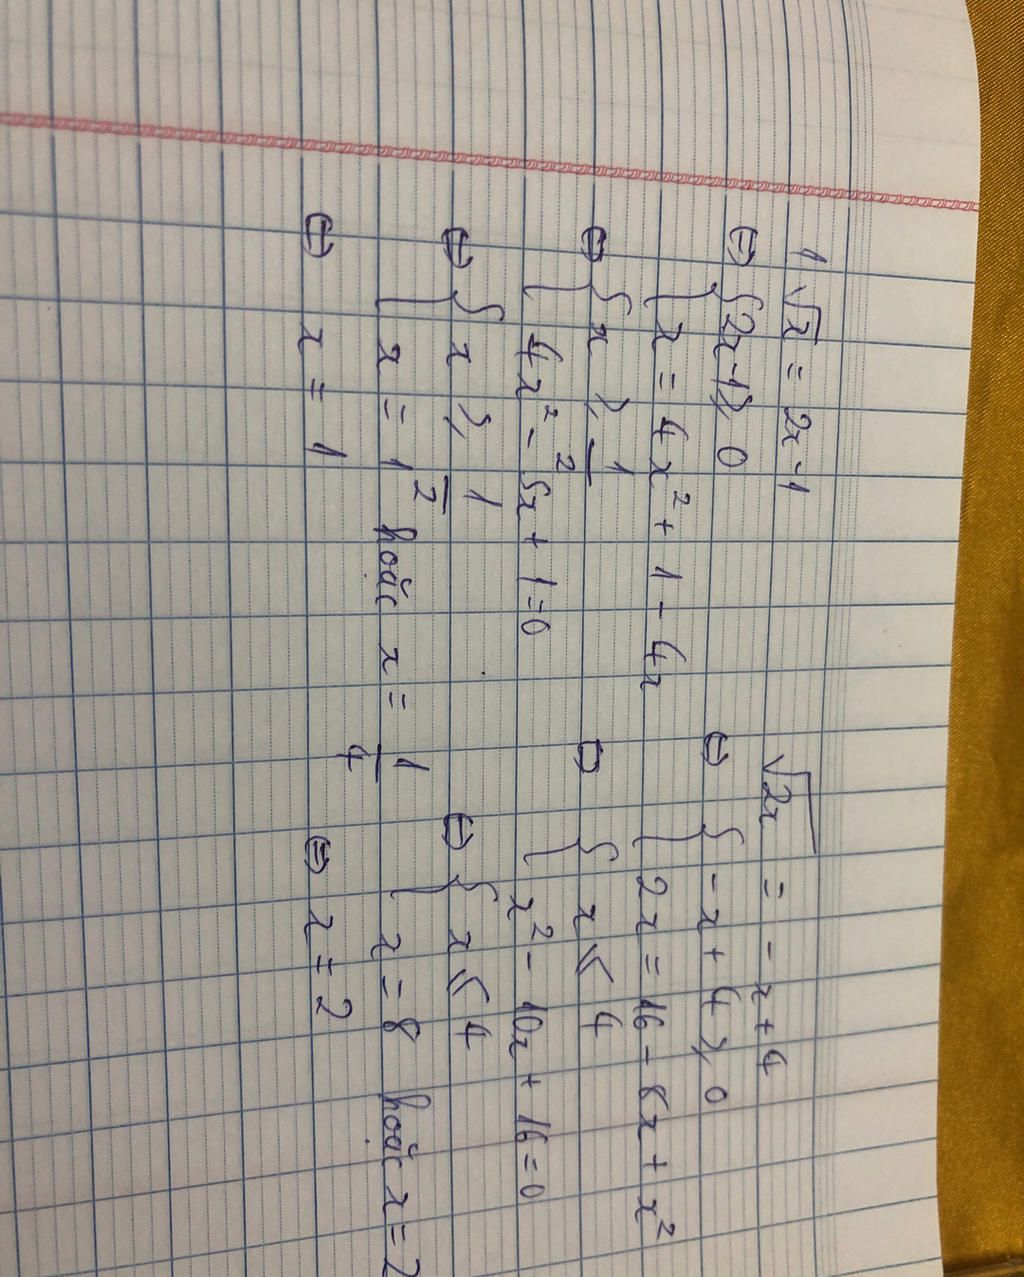 1 √x = 2x-1
⇔ { 2x-1 ≥ 0
x = 4x² + 1 - 4x
⇔ { x ≥ 1/2
4x² - 5x + 1 = 0
⇔ { x ≥ 1/2
x = 1 hoặc x = 1/4
⇔ x = 1
√2x = -x+4
⇔ { -x+4 ≥ 0
2x = 16 - 8x + x²
⇔ { x ≤ 4
x² - 10x + 16 = 0
⇔ { x ≤ 4
x = 8 hoặc x = 2
⇔ x = 2